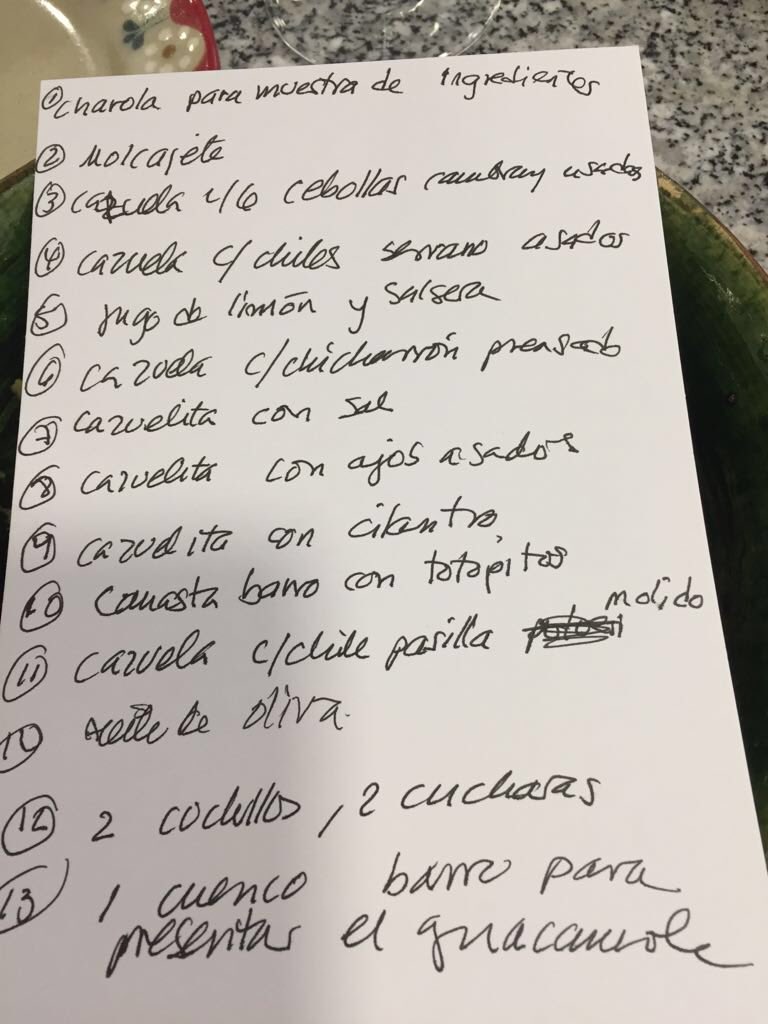 ① charola para muestra de ingredientes
② Molcajete
③ cazuela c/6 cebollas cambray asadas
④ cazuela c/chiles serrano asados
⑤ jugo de limón y salsera
⑥ cazuela c/chicharrón prensado
⑦ cazuelita con sal
⑧ cazuelita con ajos asados
⑨ cazuelita con cilantro
⑩ canasta barro con totopitos
⑪ cazuela c/chile pasilla molido
aceite de oliva.
⑫ 2 cuchillos, 2 cucharas
⑬ 1 cuenco barro para
presentar el guacamole